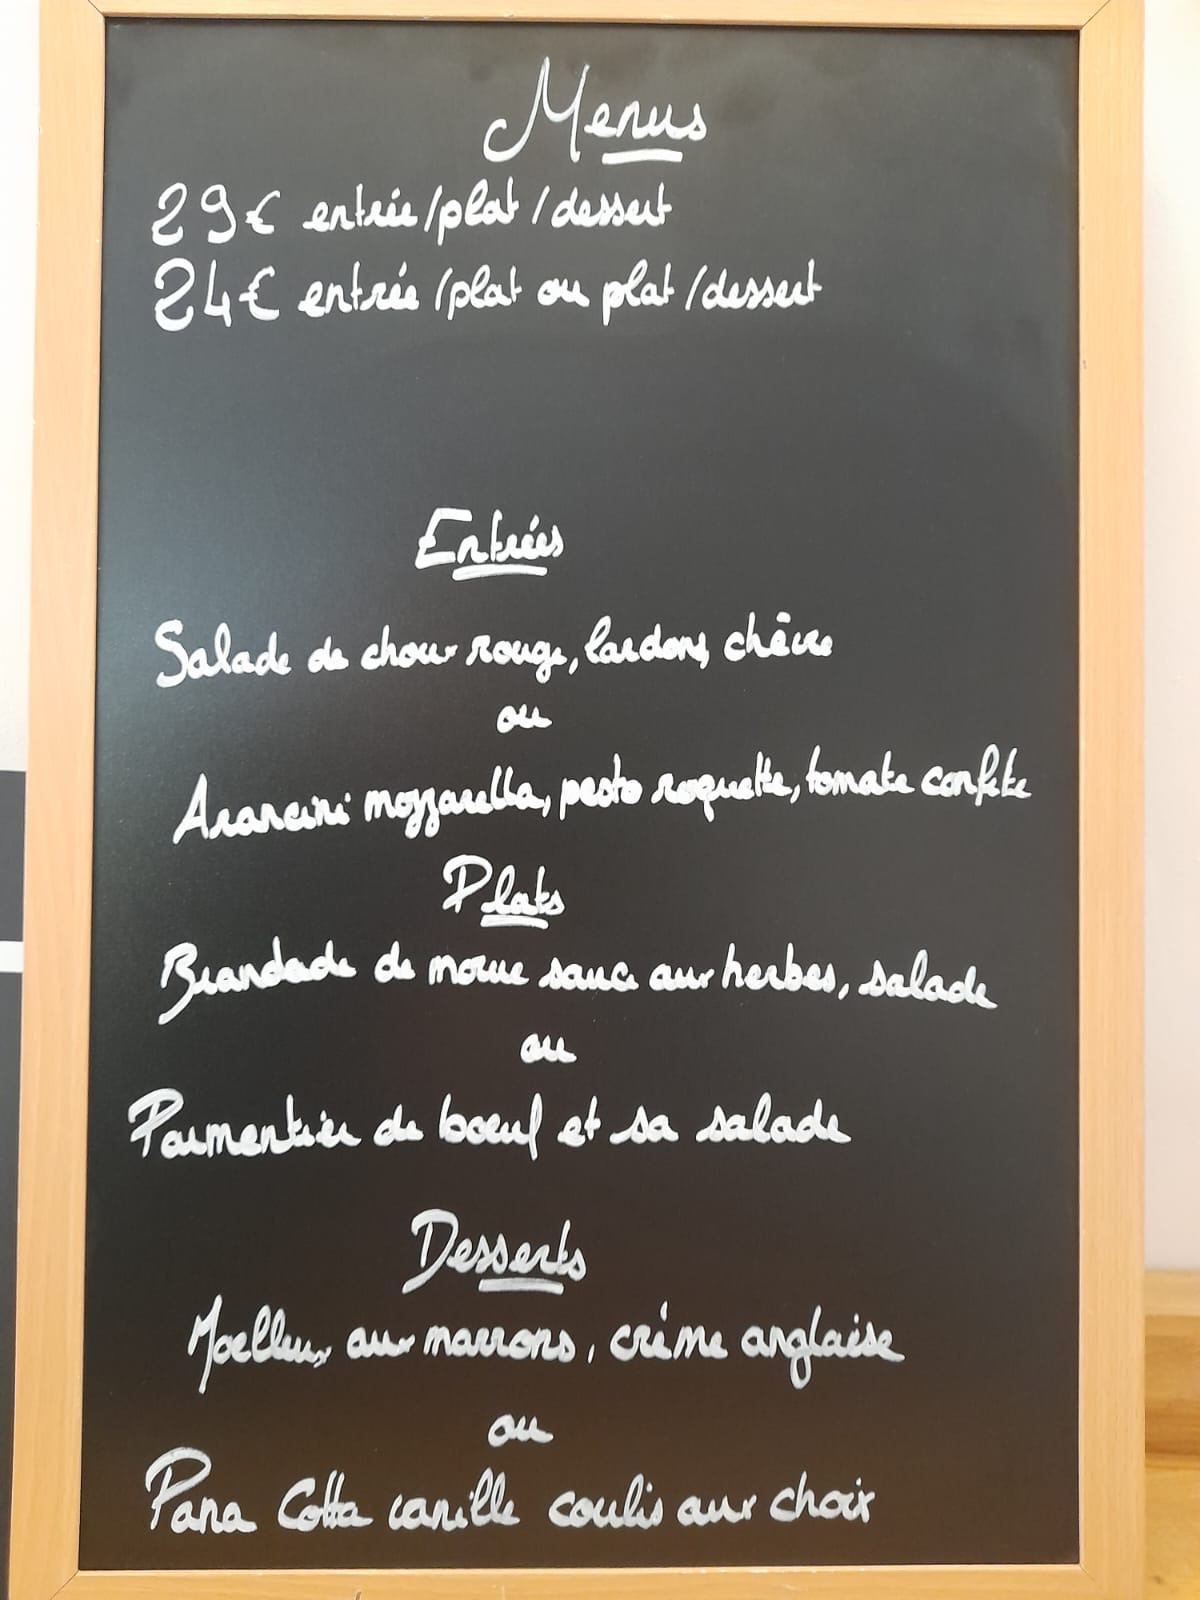 Menus
29€ entrée/plat/dessert
24€ entrée/plat ou plat/dessert
Entrées
Salade de choux rouge, lardons, chèvre
ou
Arancini mozzarella, pesto roquette, tomate confite
Plats
Brandade de morue sauce aux herbes, salade
ou
Parmentier de boeuf et sa salade
Desserts
Moelleux aux marrons, crème anglaise
ou
Pana Cotta vanille coulis aux choix